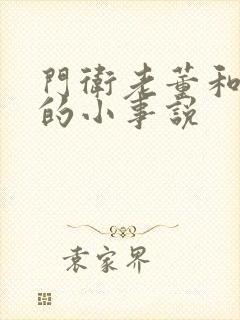 門衛老董和
的小事說
袁家界